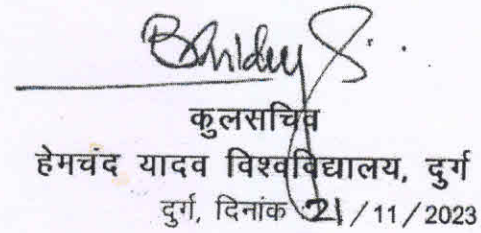 कुलसचिव
हेमचंद यादव विश्वविद्यालय, दुर्ग
दुर्ग, दिनांक 21/11/2023